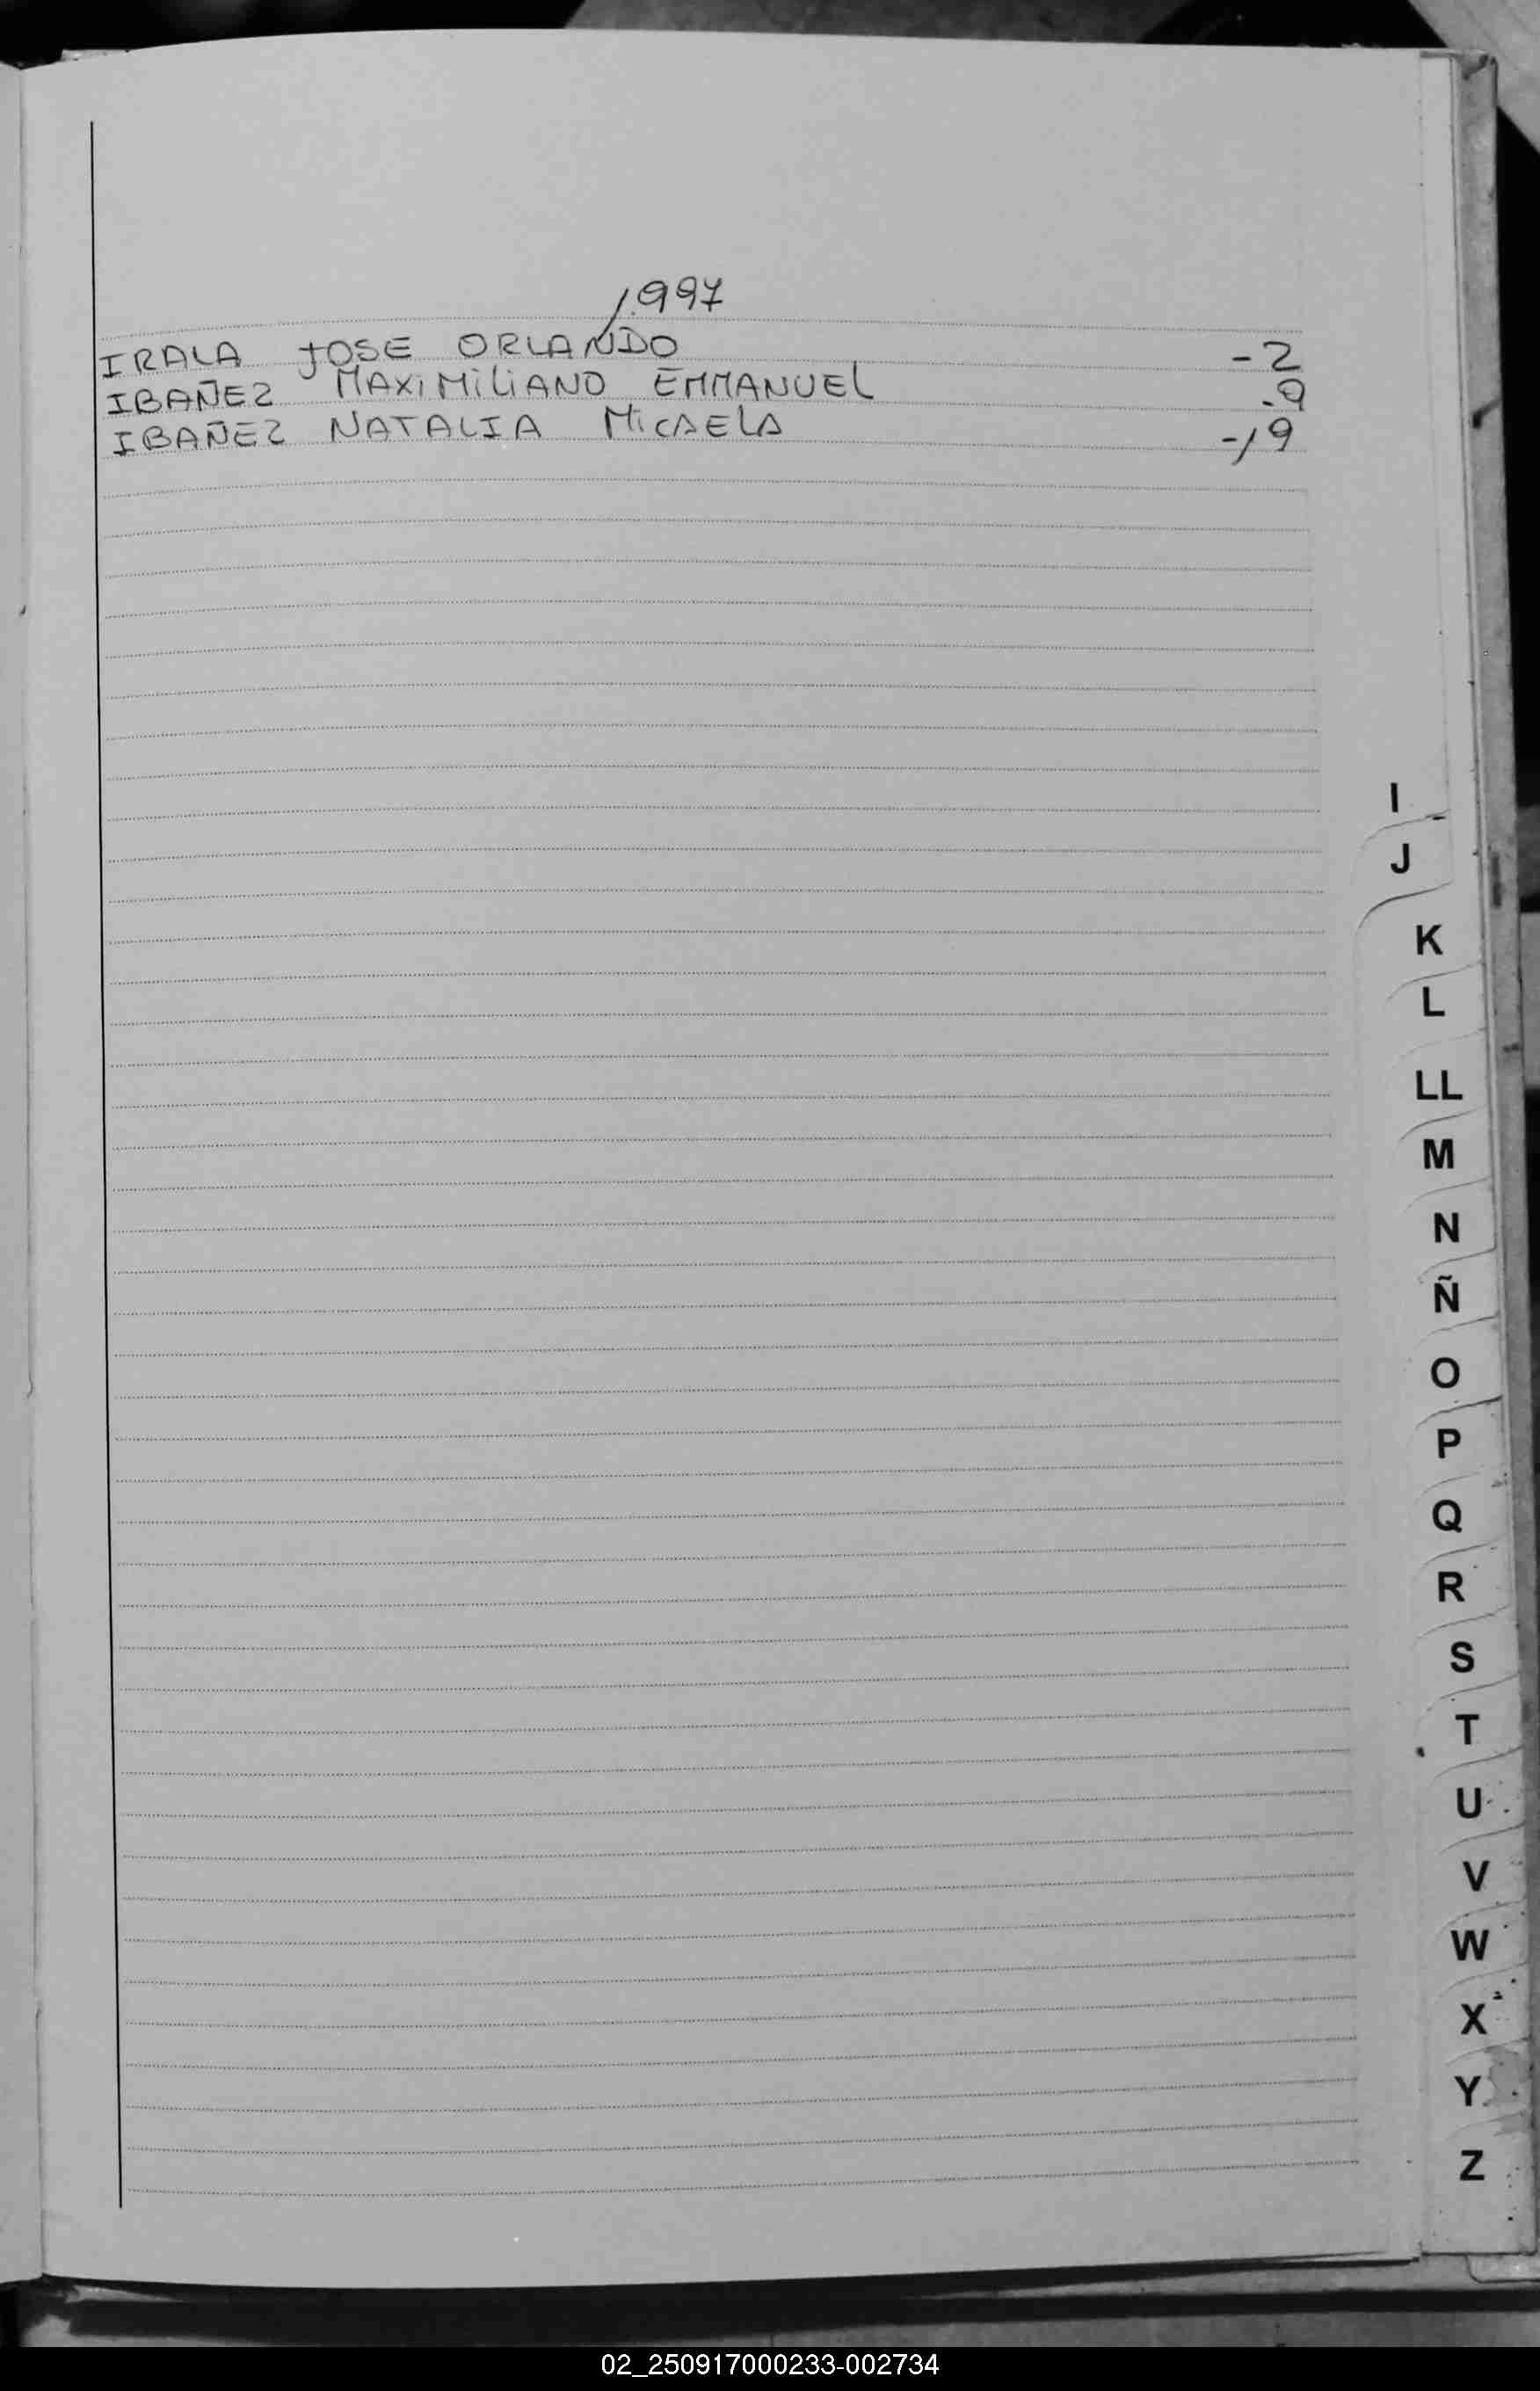 1.997
IRALA JOSE ORLANDO -2
IBAÑEZ MAXiMiLiANO EMMANUEL -9
IBAÑEZ NATALIA MiCAELA -19
I
J
K
L
LL
M
N
Ñ
O
P
Q
R
S
T
U
V
W
X
Y
Z
02_250917000233-002734